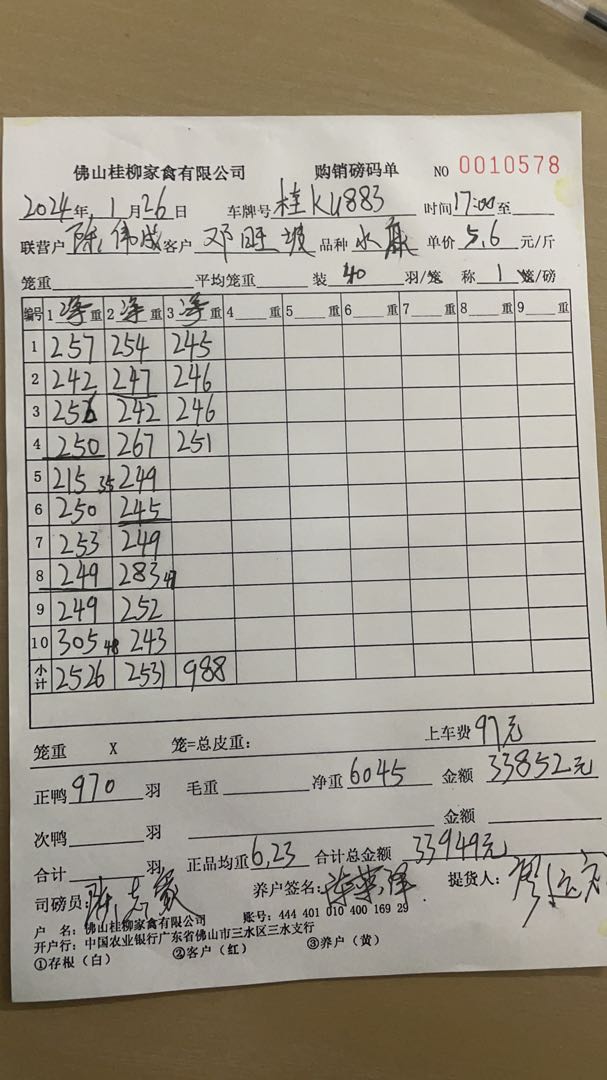 佛山桂柳家禽有限公司 购销磅码单 NO 0010578
2024年 1月26日 车牌号 桂KU883 时间17:00至
联营户 陈伟成 客户 邓旺坡 品种 水麻 单价 5.6 元/斤
笼重 平均笼重 装 40 羽/笼 称 1 笼/磅
编号 1 净重 2 净重 3 净重 4 重 5 重 6 重 7 重 8 重 9 重
1 257 254 245
2 242 247 246
3 256 242 246
4 250 267 251
5 215 35 249
6 250 245
7 253 249
8 249 283 47
9 249 252
10 305 48 243
小计 2526 2531 988
笼重 X 笼=总皮重: 上车费 97元
正鸭 970 羽 毛重 净重 6045 金额 33852元
次鸭 羽 金额
合计 羽 正品均重 6.23 合计总金额 33949元
司磅员: 陈 养户签名: 提货人:
户 名: 佛山桂柳家禽有限公司 账号: 444 401 010 400 169 29
开户行: 中国农业银行广东省佛山市三水区三水支行
①存根(白) ②客户(红) ③养户(黄)